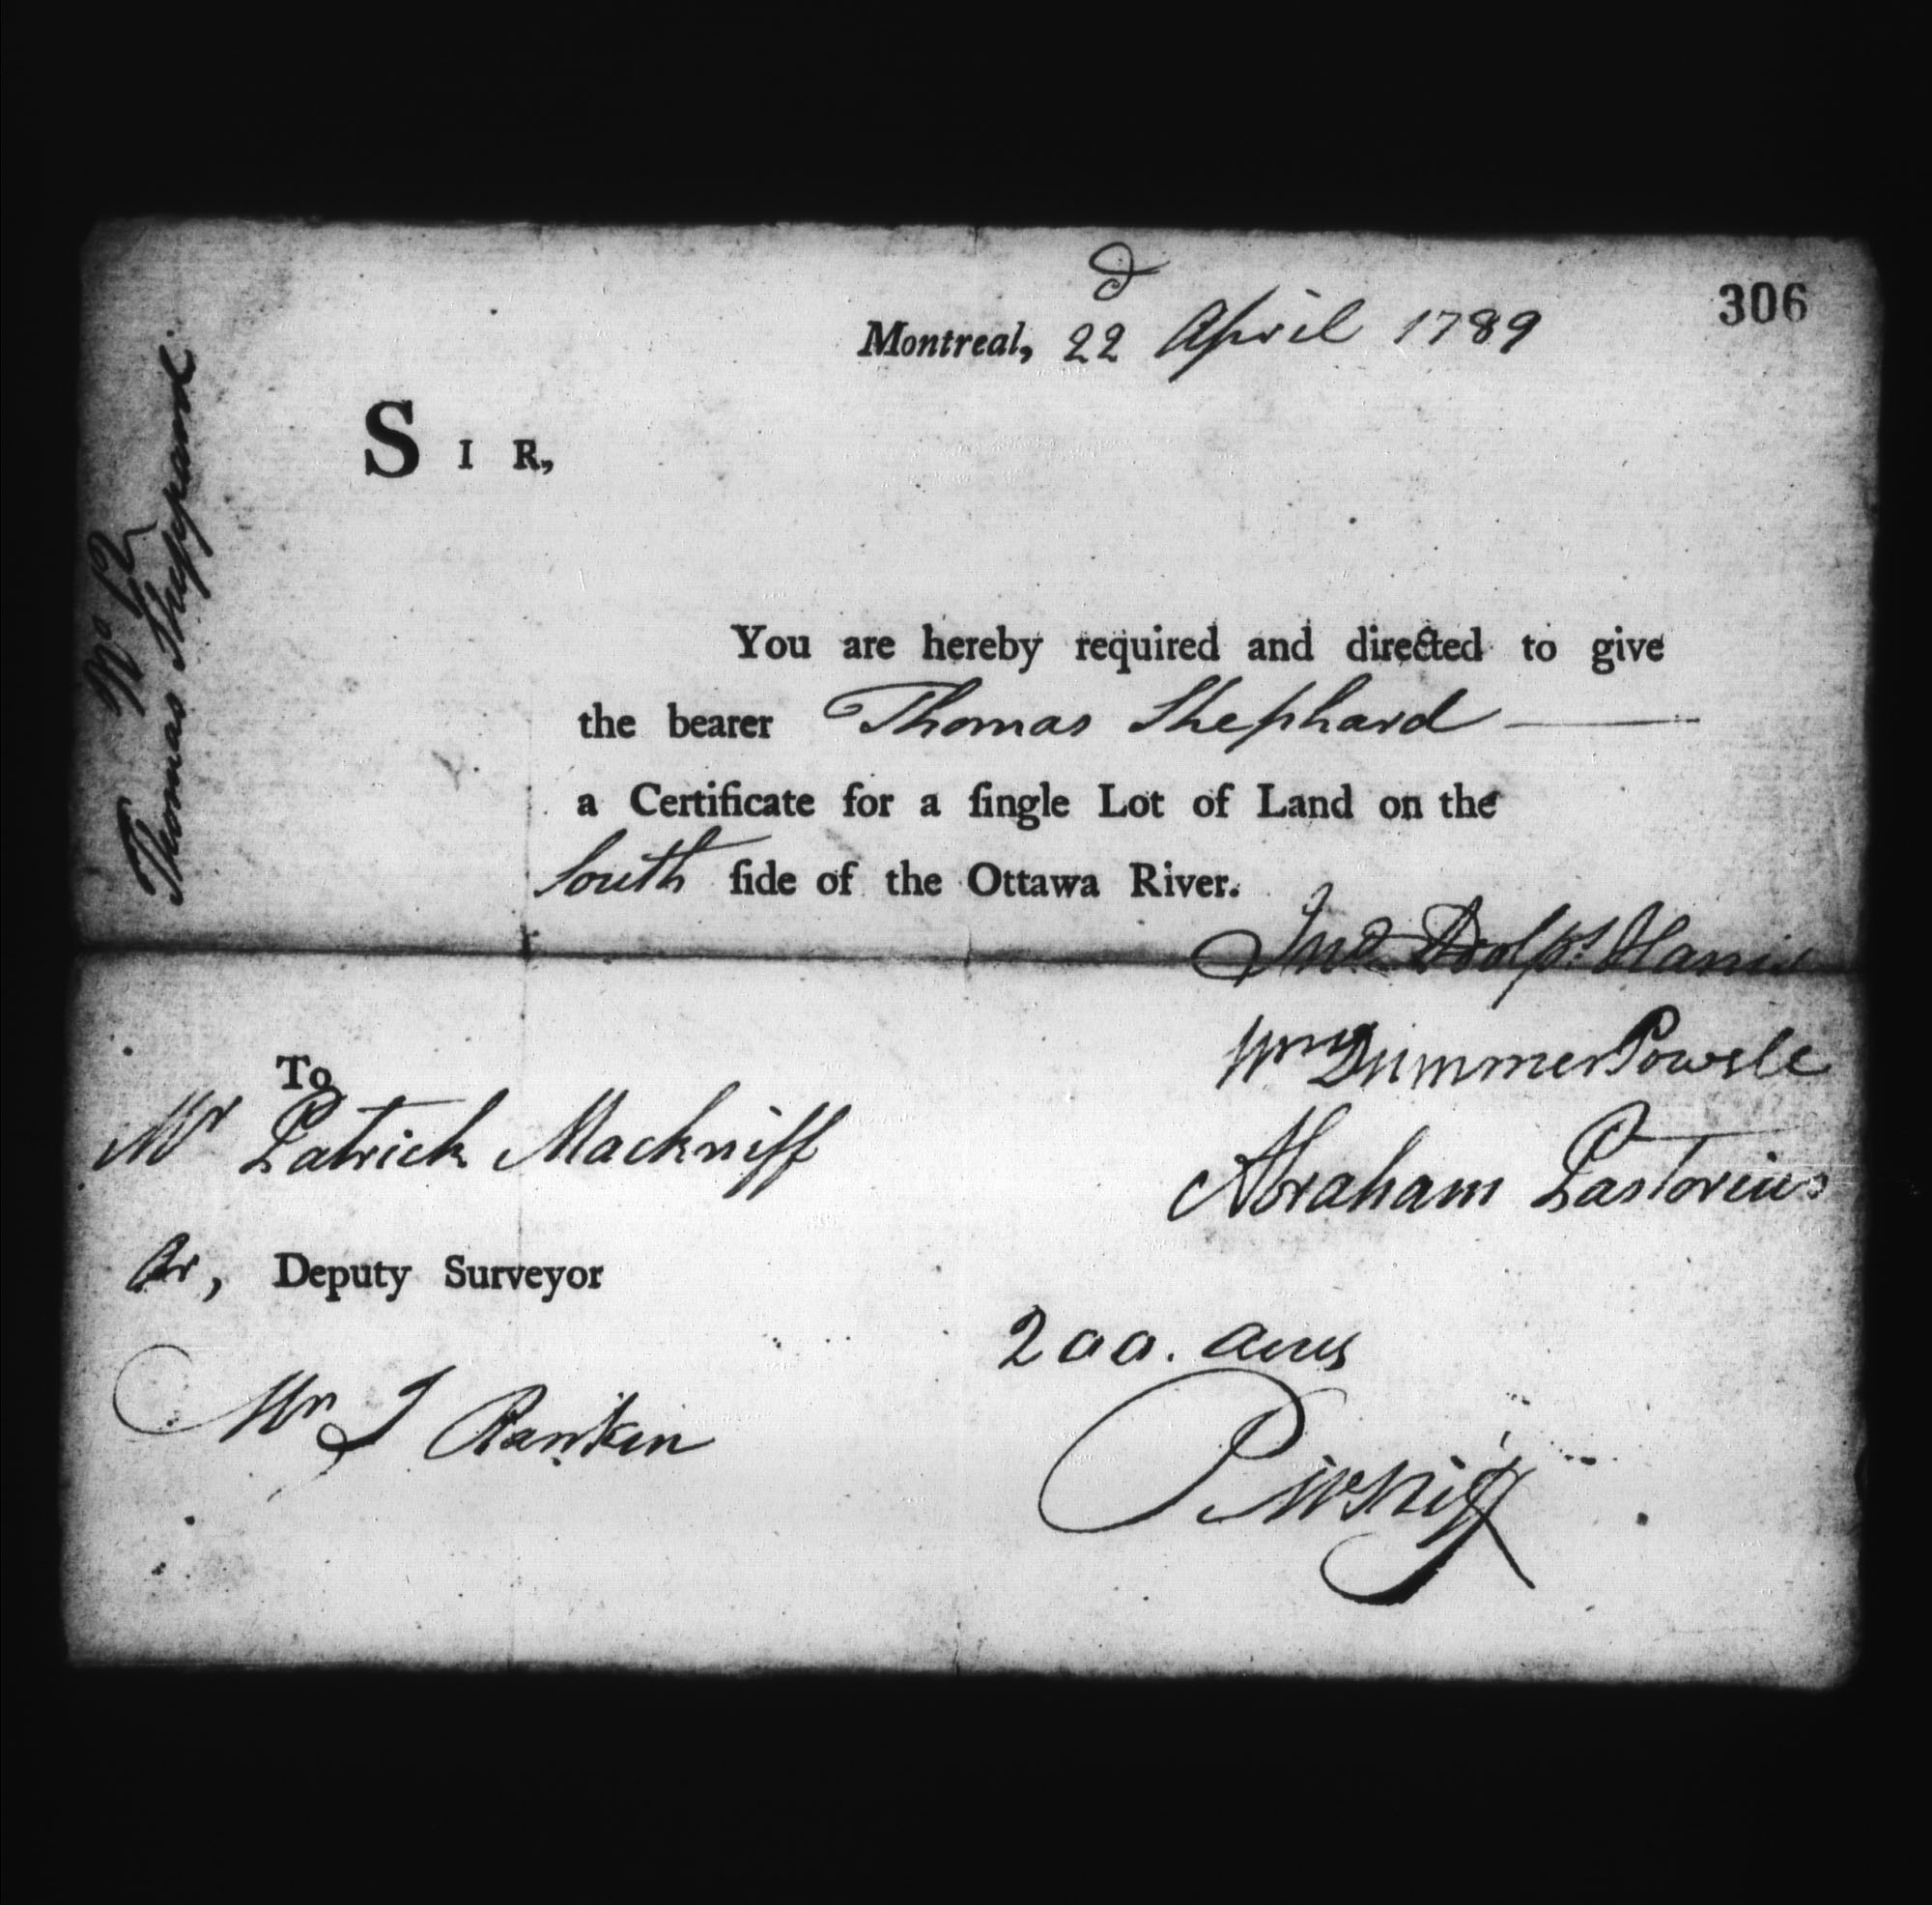 306
Montreal, 22d April 1789
SIR,
You are hereby required and directed to give
the bearer Thomas Shephard
a Certificate for a ſingle Lot of Land on the
South ſide of the Ottawa River.
Jno Adolps Harris
Wm Dummer Powell
Abraham Pastorius
To
Mr Patrick Mackniff
Or, Deputy Surveyor
Mr J Rankin
200. acres
P McNiff
Thomas Sheppard